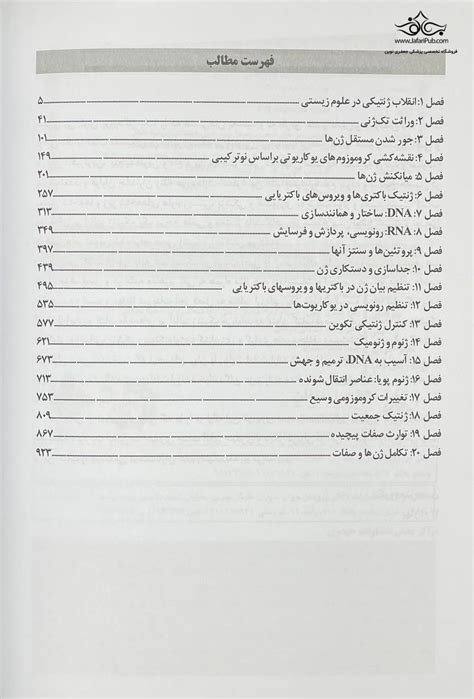 www.JafariPub.com
فروشگاه تخصصی پزشکی جعفری نوین
فهرست مطالب
فصل ۱: انقلاب ژنتیکی در علوم زیستی ۵
فصل ۲: وراثت تک‌ژنی ۴۱
فصل ۳: جور شدن مستقل ژن‌ها ۱۰۱
فصل ۴: نقشه‌کشی کروموزوم‌های یوکاریوتی براساس نوترکیبی ۱۴۹
فصل ۵: میانکنش ژن‌ها ۲۰۱
فصل ۶: ژنتیک باکتری‌ها و ویروس‌های باکتریایی ۲۵۷
فصل ۷: DNA: ساختار و همانندسازی ۳۱۳
فصل ۸: RNA: رونویسی، پردازش و فرسایش ۳۴۹
فصل ۹: پروتئین‌ها و سنتز آنها ۳۹۷
فصل ۱۰: جداسازی و دستکاری ژن ۴۳۹
فصل ۱۱: تنظیم بیان ژن در باکتریها و ویروسهای باکتریایی ۴۹۵
فصل ۱۲: تنظیم رونویسی در یوکاریوت‌ها ۵۳۵
فصل ۱۳: کنترل ژنتیکی تکوین ۵۷۷
فصل ۱۴: ژنوم و ژنومیک ۶۲۱
فصل ۱۵: آسیب به DNA، ترمیم و جهش ۶۷۳
فصل ۱۶: ژنوم پویا: عناصر انتقال شونده ۷۱۳
فصل ۱۷: تغییرات کروموزومی وسیع ۷۵۳
فصل ۱۸: ژنتیک جمعیت ۸۰۹
فصل ۱۹: توارث صفات پیچیده ۸۶۷
فصل ۲۰: تکامل ژن‌ها و صفات ۹۲۳